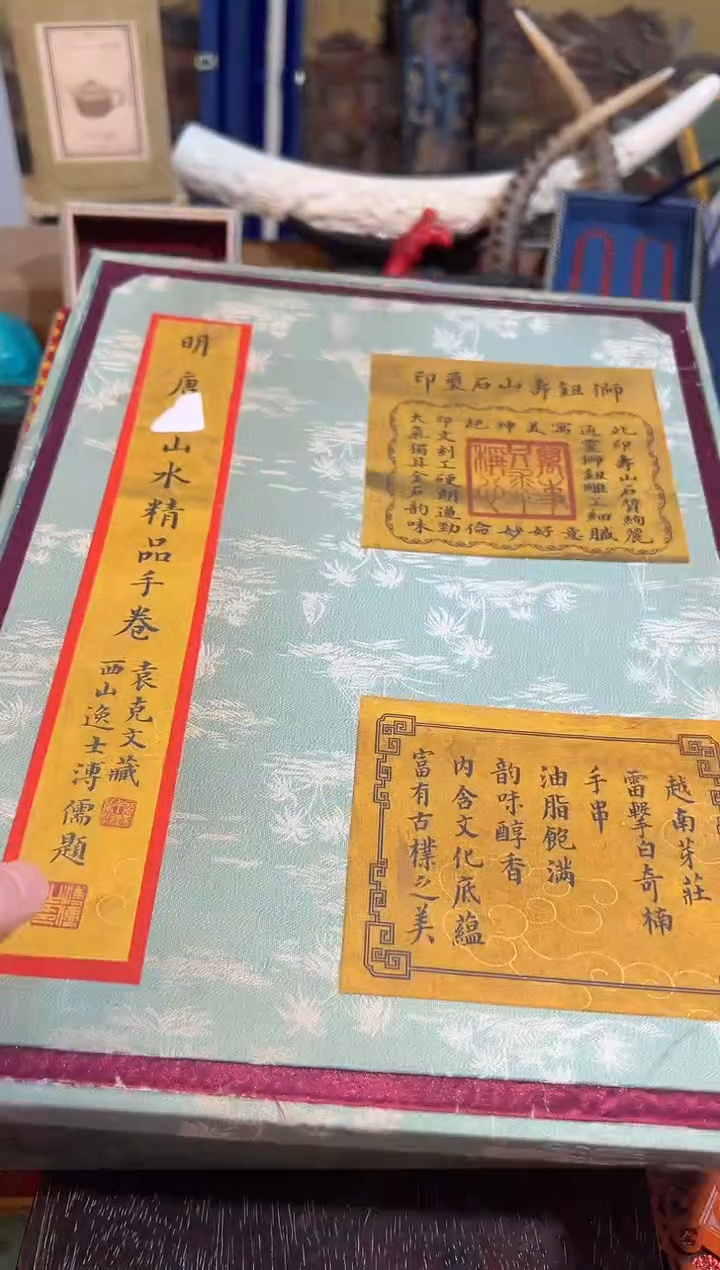 明唐
山水精品手卷
袁克文藏
西山逸士溥儒題
獅鈕壽山石璽印
此印壽山石質絢麗
通靈獅鈕雕工細膩
寓意
美好
神妙
絕倫
印文刻工硬朗遒勁
大氣獨具金石韵味
越南芽莊
雷擊白奇楠
手串
油脂飽滿
韵味醇香
内含文化底蘊
富有古樸之美